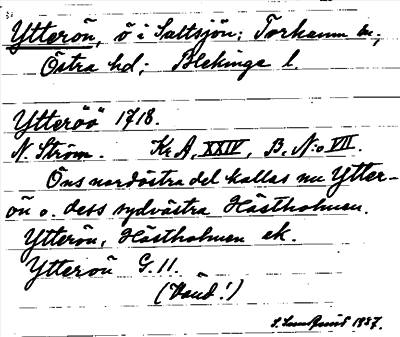 Ytterön, ö i Saltsjön; Torhamn sn;
Östra hd; Blekinge l.
Ytteröö 1718.
N. Ström. Kr.A, XXIV, B, N:o VII.
Öns nordöstra del kallas nu Ytter-
ön o. dess sydvästra Hästholmen.
Ytterön, Hästholmen ek.
Ytterön G. 11.
(Vänd!)
1887.